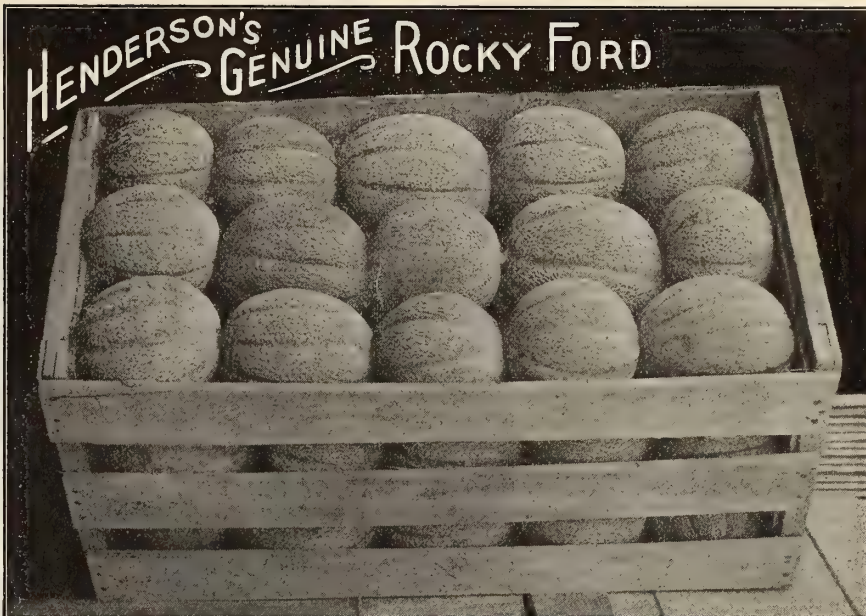 HENDERSON'S
GENUINE ROCKY FORD